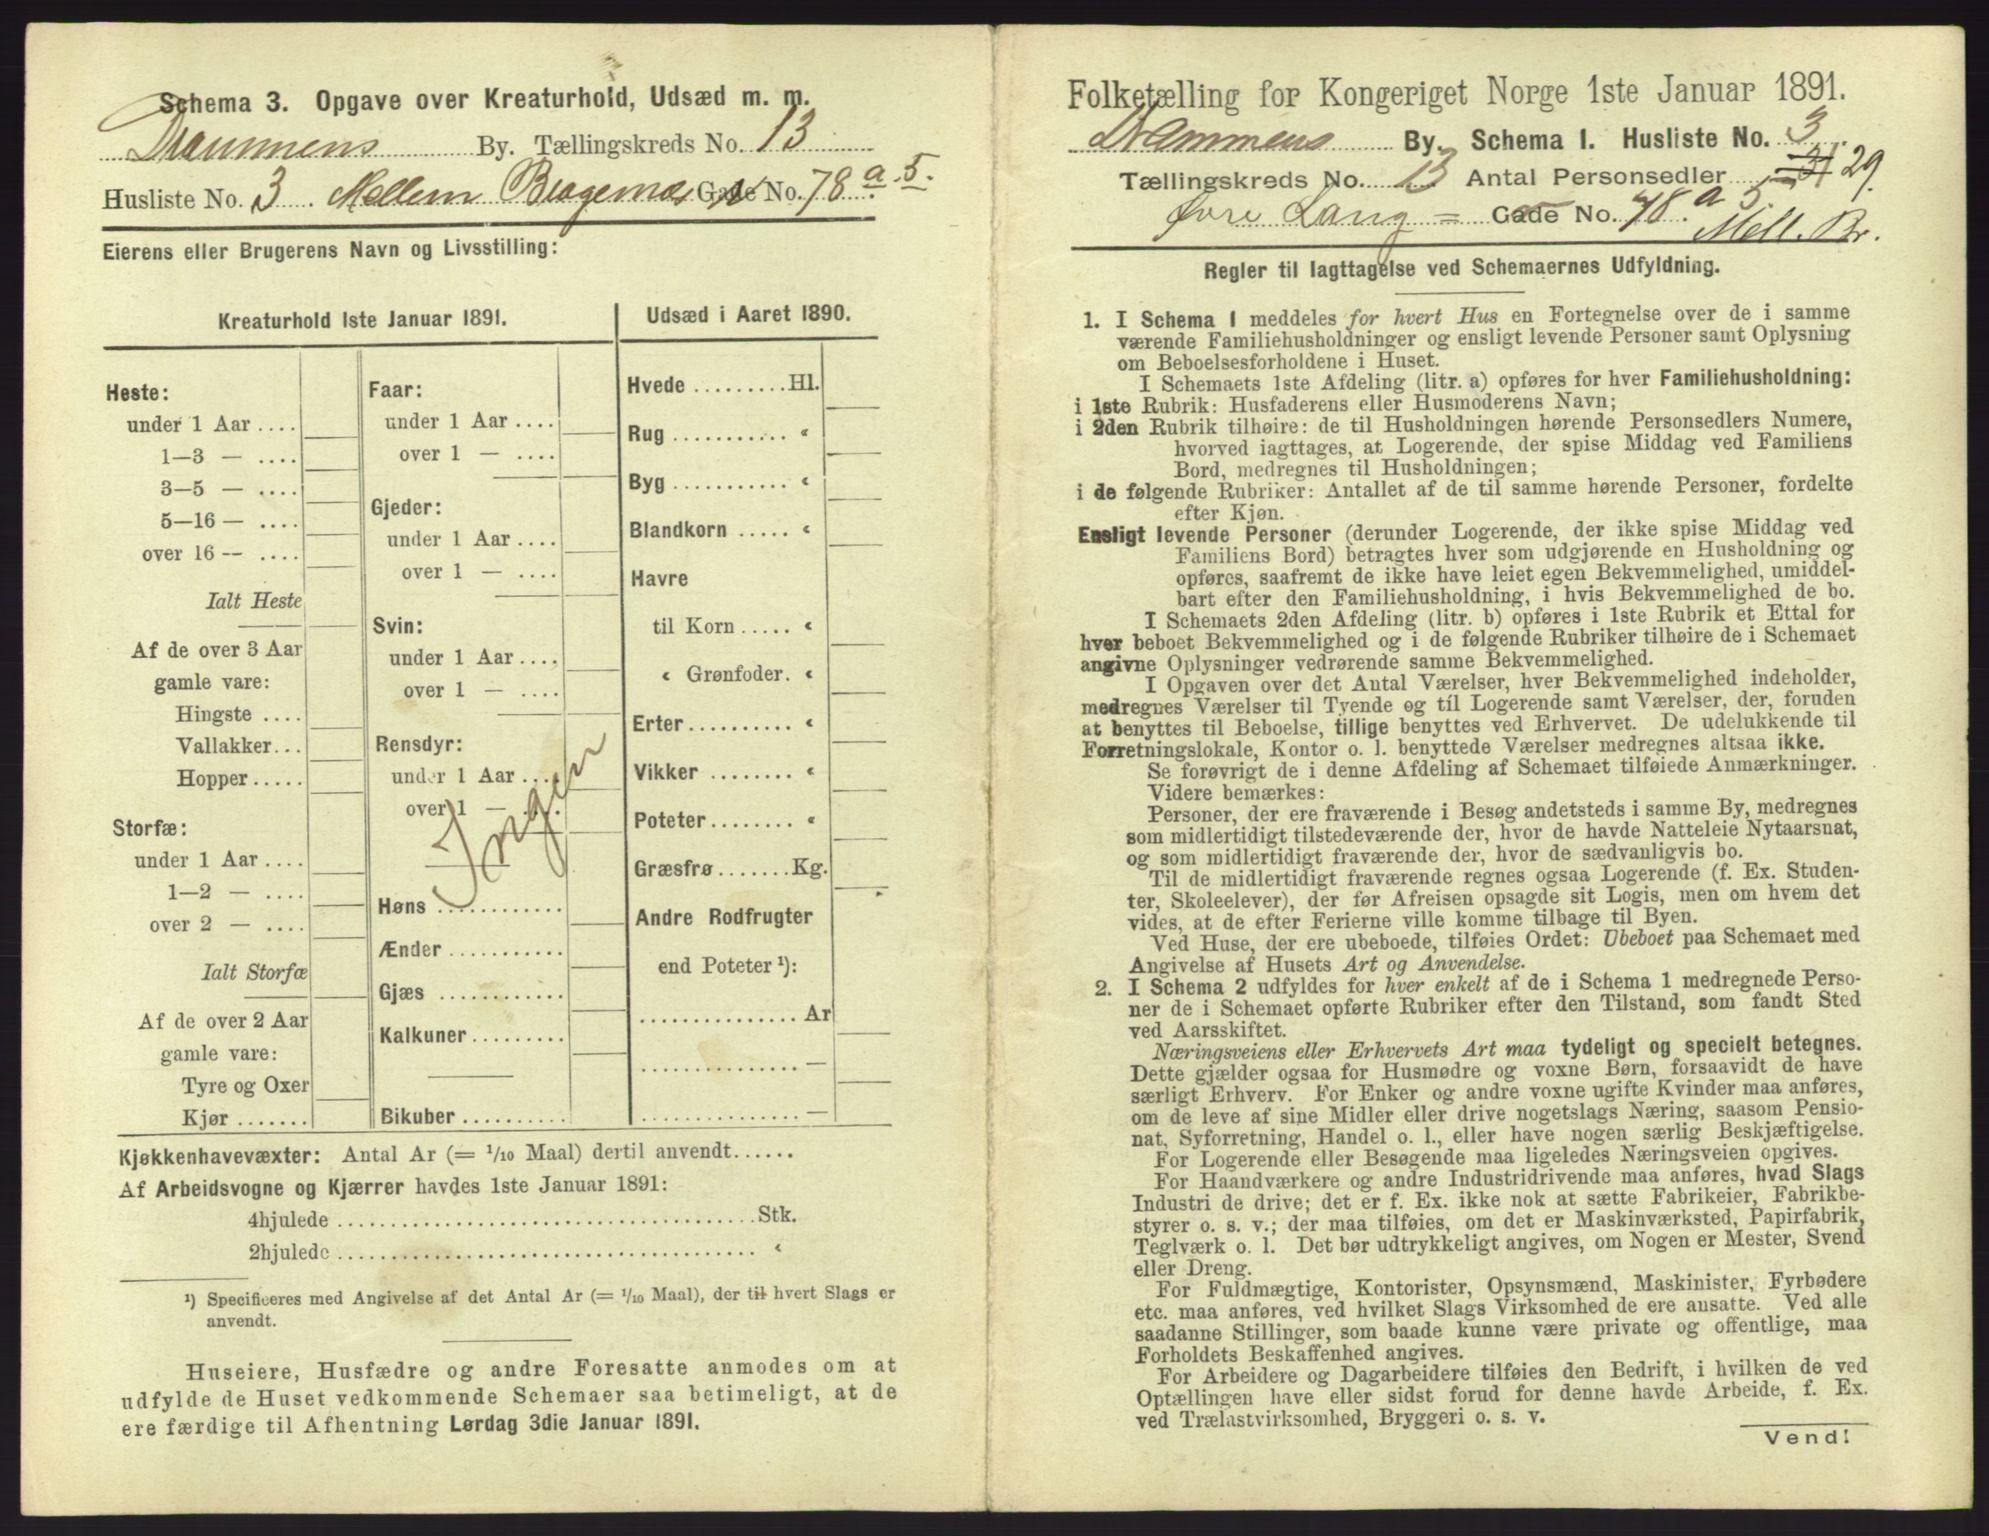 Schema 3. Opgave over Kreaturhold, Udsæd m. m.
Drammens By. Tællingskreds No. 13
Husliste No. 3 Mellem Bragernæs Gade No. 78 a. 5.
Eierens eller Brugerens Navn og Livsstilling:
Kreaturhold 1ste Januar 1891.
Heste:
under 1 Aar ....
1—3 — ....
3—5 — ....
5—16 — ....
over 16 -- ....
Ialt Heste
Af de over 3 Aar
gamle vare:
Hingste ....
Vallakker...
Hopper .....
Storfæ:
under 1 Aar ....
1—2 — ....
over 2 — ....
Ialt Storfæ
Af de over 2 Aar
gamle vare:
Tyre og Oxer
Kjør .......
Faar:
under 1 Aar ....
over 1 — ....
Gjeder:
under 1 Aar ....
over 1 — ....
Svin:
under 1 Aar ....
over 1 — ....
Rensdyr:
under 1 Aar ....
over 1 — ....
Ingen
Høns ............
Ænder ...........
Gjæs ............
Kalkuner .........
Bikuber ..........
Udsæd i Aaret 1890.
Hvede .........Hl.
Rug ........... «
Byg ........... «
Blandkorn ..... «
Havre
til Korn ..... «
« Grønfoder. «
Erter .......... «
Vikker ........ «
Poteter ........ «
Græsfrø .......Kg.
Andre Rodfrugter
end Poteter ¹):
............... Ar
............... —
............... —
Kjøkkenhavevæxter: Antal Ar (= 1/10 Maal) dertil anvendt......
Af Arbeidsvogne og Kjærrer havdes 1ste Januar 1891:
4hjulede ........................................Stk.
2hjulede ........................................ «
¹) Specificeres med Angivelse af det Antal Ar (= 1/10 Maal), der til hvert Slags er
anvendt.
Huseiere, Husfædre og andre Foresatte anmodes om at
udfylde de Huset vedkommende Schemaer saa betimeligt, at de
ere færdige til Afhentning Lørdag 3die Januar 1891.
Folketælling for Kongeriget Norge 1ste Januar 1891.
Drammens By. Schema 1. Husliste No. 3
Tællingskreds No. 13 Antal Personsedler 31 29.
Øvre Lang = Gade No. 78. a 5
Mell. Br.
Regler til Iagttagelse ved Schemaernes Udfyldning.
1. I Schema 1 meddeles for hvert Hus en Fortegnelse over de i samme
værende Familiehusholdninger og ensligt levende Personer samt Oplysning
om Beboelsesforholdene i Huset.
I Schemaets 1ste Afdeling (litr. a) opføres for hver Familiehusholdning:
i 1ste Rubrik: Husfaderens eller Husmoderens Navn;
i 2den Rubrik tilhøire: de til Husholdningen hørende Personsedlers Numere,
hvorved iagttages, at Logerende, der spise Middag ved Familiens
Bord, medregnes til Husholdningen;
i de følgende Rubriker: Antallet af de til samme hørende Personer, fordelte
efter Kjøn.
Ensligt levende Personer (derunder Logerende, der ikke spise Middag ved
Familiens Bord) betragtes hver som udgjørende en Husholdning og
opføres, saafremt de ikke have leiet egen Bekvemmelighed, umiddel-
bart efter den Familiehusholdning, i hvis Bekvemmelighed de bo.
I Schemaets 2den Afdeling (litr. b) opføres i 1ste Rubrik et Ettal for
hver beboet Bekvemmelighed og i de følgende Rubriker tilhøire de i Schemaet
angivne Oplysninger vedrørende samme Bekvemmelighed.
I Opgaven over det Antal Værelser, hver Bekvemmelighed indeholder,
medregnes Værelser til Tyende og til Logerende samt Værelser, der, foruden
at benyttes til Beboelse, tillige benyttes ved Erhvervet. De udelukkende til
Forretningslokale, Kontor o. l. benyttede Værelser medregnes altsaa ikke.
Se forøvrigt de i denne Afdeling af Schemaet tilføiede Anmærkninger.
Videre bemærkes:
Personer, der ere fraværende i Besøg andetsteds i samme By, medregnes
som midlertidigt tilstedeværende der, hvor de havde Natteleie Nytaarsnat,
og som midlertidigt fraværende der, hvor de sædvanligvis bo.
Til de midlertidigt fraværende regnes ogsaa Logerende (f. Ex. Studen-
ter, Skoleelever), der før Afreisen opsagde sit Logis, men om hvem det
vides, at de efter Ferierne ville komme tilbage til Byen.
Ved Huse, der ere ubeboede, tilføies Ordet: Ubeboet paa Schemaet med
Angivelse af Husets Art og Anvendelse.
2. I Schema 2 udfyldes for hver enkelt af de i Schema 1 medregnede Perso-
ner de i Schemaet opførte Rubriker efter den Tilstand, som fandt Sted
ved Aarsskiftet.
Næringsveiens eller Erhvervets Art maa tydeligt og specielt betegnes.
Dette gjælder ogsaa for Husmødre og voxne Børn, forsaavidt de have
særligt Erhverv. For Enker og andre voxne ugifte Kvinder maa anføres,
om de leve af sine Midler eller drive nogetslags Næring, saasom Pensio-
nat, Syforretning, Handel o. l., eller have nogen særlig Beskjæftigelse.
For Logerende eller Besøgende maa ligeledes Næringsveien opgives.
For Haandværkere og andre Industridrivende maa anføres, hvad Slags
Industri de drive; det er f. Ex. ikke nok at sætte Fabrikeier, Fabrikbe-
styrer o. s. v.; der maa tilføies, om det er Maskinværksted, Papirfabrik,
Teglværk o. l. Det bør udtrykkeligt angives, om Nogen er Mester, Svend
eller Dreng.
For Fuldmægtige, Kontorister, Opsynsmænd, Maskinister, Fyrbødere
etc. maa anføres, ved hvilket Slags Virksomhed de ere ansatte. Ved alle
saadanne Stillinger, som baade kunne være private og offentlige, maa
Forholdets Beskaffenhed angives.
For Arbeidere og Dagarbeidere tilføies den Bedrift, i hvilken de ved
Optællingen have eller sidst forud for denne havde Arbeide, f. Ex.
ved Trælastvirksomhed, Bryggeri o. s. v.
Vend!